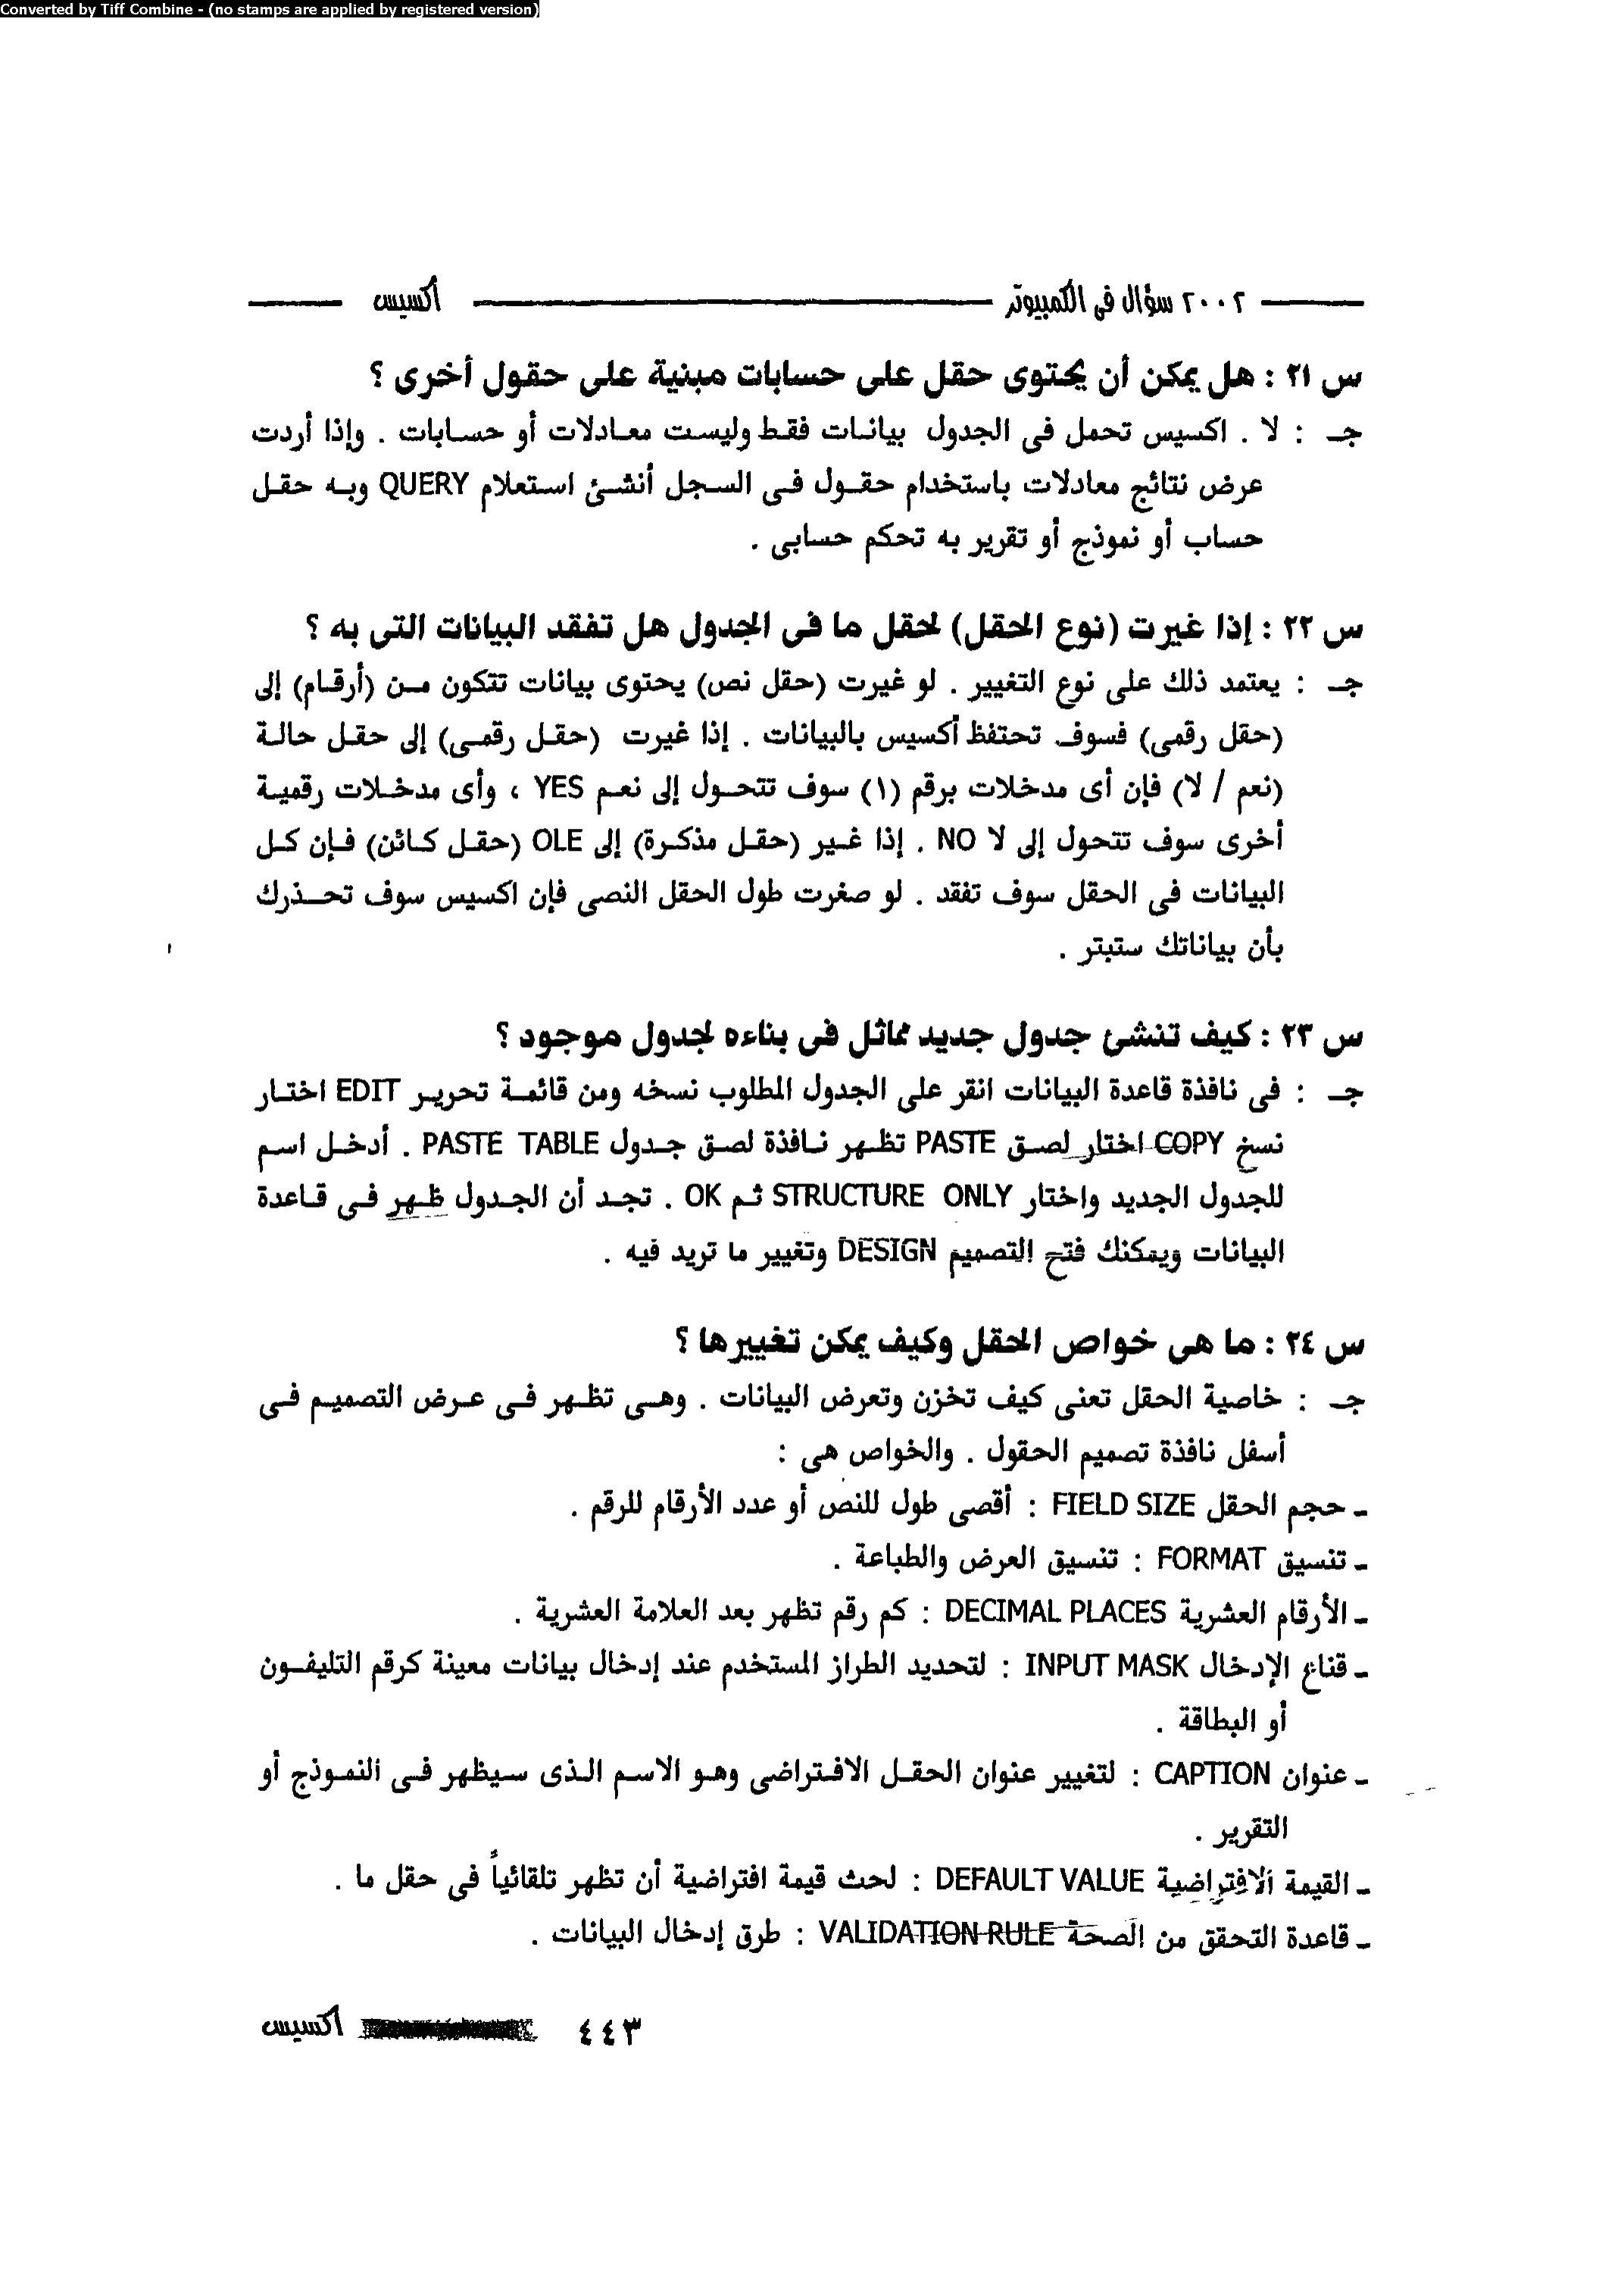 Converted by Tiff Combine - (no stamps are applied by registered version)
٢٠٠٢ سؤال فى الكمبيوتر أكسيس
س ٢١ : هل يمكن أن يحتوى حقل على حسابات مبنية على حقول أخرى ؟
جـ : لا . اكسيس تحمل فى الجدول بيانات فقط وليست معادلات أو حسابات . وإذا أردت
عرض نتائج معادلات باستخدام حقول فى السجل أنشئ استعلام QUERY وبه حقل
حساب أو نموذج أو تقرير به تحكم حسابى .
س ٢٢ : إذا غيرت (نوع الحقل) لحقل ما فى الجدول هل تفقد البيانات التى به ؟
جـ : يعتمد ذلك على نوع التغيير . لو غيرت (حقل نص) يحتوى بيانات تتكون من (أرقام) إلى
(حقل رقمى) فسوف تحتفظ أكسيس بالبيانات . إذا غيرت (حقل رقمى) إلى حقل حالة
(نعم / لا) فإن أى مدخلات برقم (١) سوف تتحول إلى نعم YES ، وأى مدخلات رقمية
أخرى سوف تتحول إلى لا NO . إذا غير (حقل مذكرة) إلى OLE (حقل كائن) فإن كل
البيانات فى الحقل سوف تفقد . لو صغرت طول الحقل النصى فإن اكسيس سوف تحذرك
بأن بياناتك ستبتر .
س ٢٣ : كيف تنشئ جدول جديد مماثل فى بناءه لجدول موجود ؟
جـ : فى نافذة قاعدة البيانات انقر على الجدول المطلوب نسخه ومن قائمة تحرير EDIT اختار
نسخ COPY اختار لصق PASTE تظهر نافذة لصق جدول PASTE TABLE . أدخل اسم
للجدول الجديد واختار STRUCTURE ONLY ثم OK . تجد أن الجدول ظهر فى قاعدة
البيانات ويمكنك فتح التصميم DESIGN وتغيير ما تريد فيه .
س ٢٤ : ما هى خواص الحقل وكيف يمكن تغييرها ؟
جـ : خاصية الحقل تعنى كيف تخزن وتعرض البيانات . وهى تظهر فى عرض التصميم فى
أسفل نافذة تصميم الحقول . والخواص هى :
ـ حجم الحقل FIELD SIZE : أقصى طول للنص أو عدد الأرقام للرقم .
ـ تنسيق FORMAT : تنسيق العرض والطباعة .
ـ الأرقام العشرية DECIMAL PLACES : كم رقم تظهر بعد العلامة العشرية .
ـ قناع الإدخال INPUT MASK : لتحديد الطراز المستخدم عند إدخال بيانات معينة كرقم التليفون
أو البطاقة .
ـ عنوان CAPTION : لتغيير عنوان الحقل الافتراضى وهو الاسم الذى سيظهر فى النموذج أو
التقرير .
ـ القيمة الافتراضية DEFAULT VALUE : لحث قيمة افتراضية أن تظهر تلقائياً فى حقل ما .
ـ قاعدة التحقق من الصحة VALIDATION RULE : طرق إدخال البيانات .
٤٤٣ أكسيس